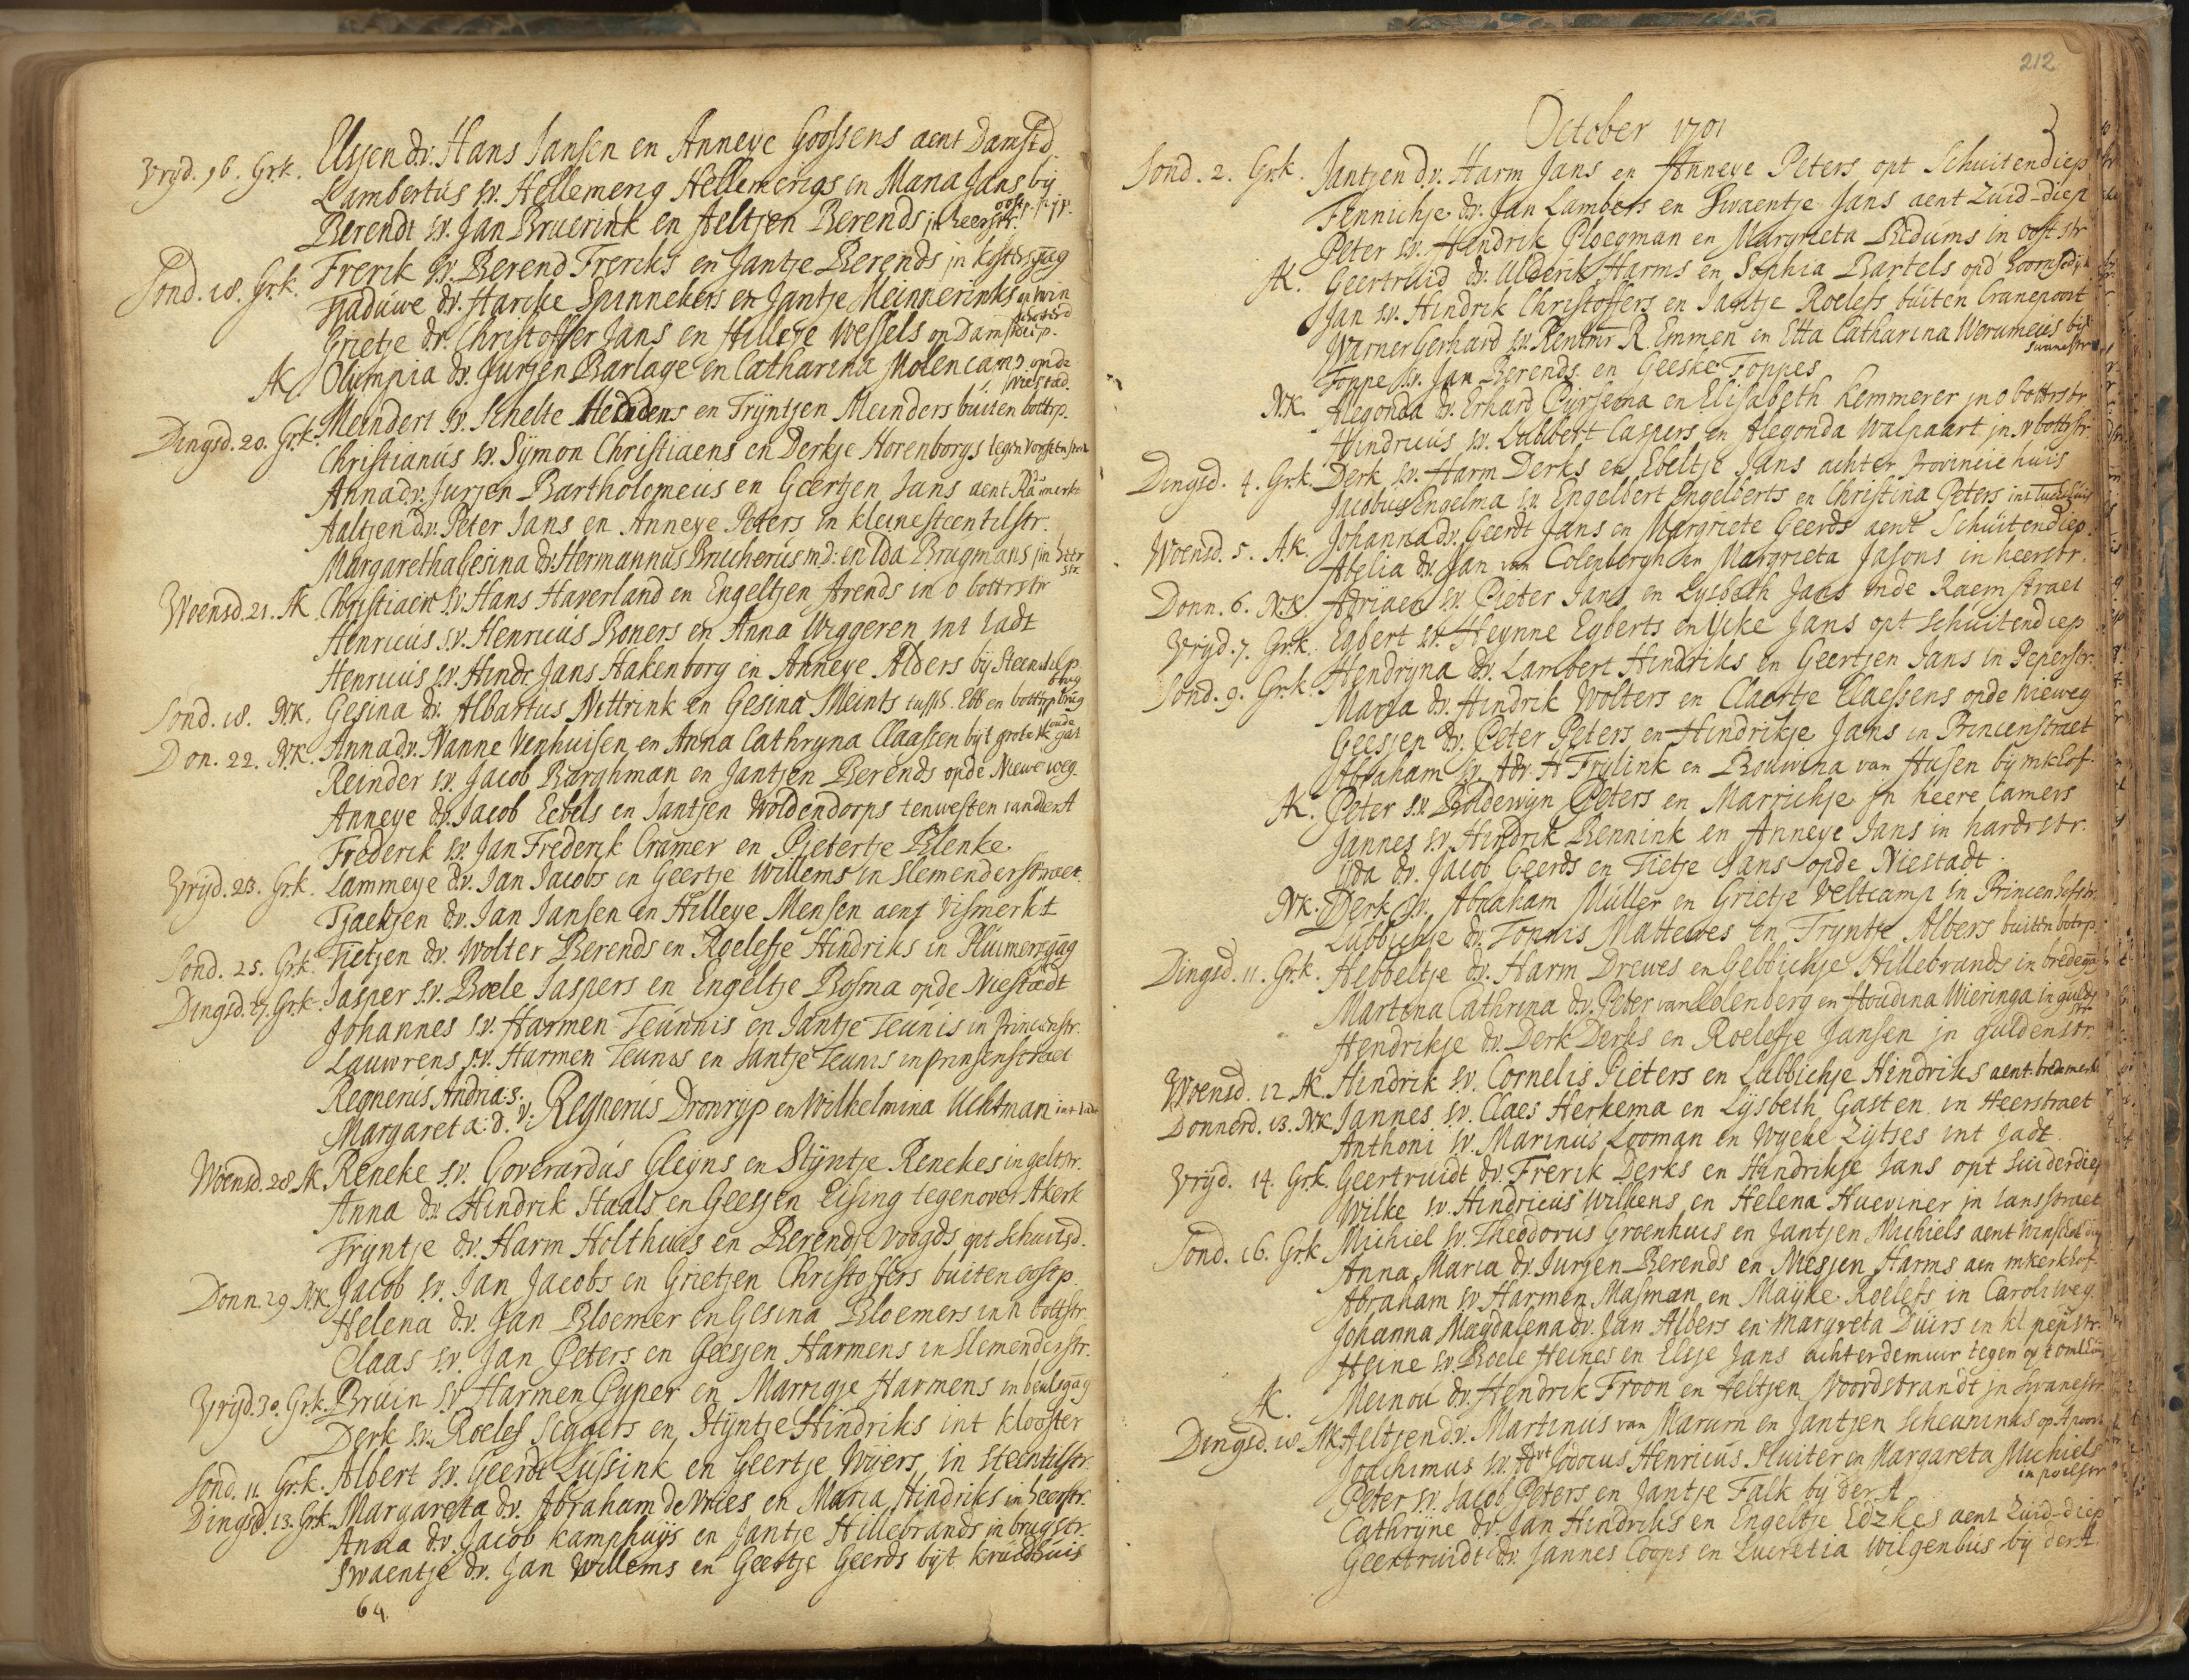 Elsjen dv. Hans Jansen en Anneye Goossens aent Damstd.
Vryd. 16. Grk. Lambertus sv. Hellemerig Hellemerigs en Maria Jans bij oostp.
Berendt sv. Jan Bruerink en Aeltjen Berends in heerstr.
Sond. 18. Grk. Frerik sv. Berend Freriks en Jantje Berends in kostersgag
Haduwe dv. Harcke Spinnekers en Jantje Meinnerinks
Grietje dv. Christoffer Jans en Hilleye Wessels on Damsterp.
AK. Olympia dv. Jurjen Barlage en Catharina Molencamp opde Niestad.
Dingsd. 20. Grk. Meindert sv. Schelte Meinders en Tryntjen Meinders buiten bottrp.
Christianus sv. Symon Christiaens en Derkje Horenborgs tegen
Anna dv. Jurjen Bartholomeus en Geertjen Jans aent
Aaltjen dv. Peter Jans en Anneye Peters in kleinesteentilstr.
Margaretha Gesina dv. Hermannus Brucherus md: en Ida Brugmans in hrr str.
Woensd. 21. AK Christiaen sv. Hans Haverland en Engeltjen Arends in o bottrstr
Henricus sv. Henricus Boners en Anna Wiggeren int Jadt
Henricus sv. Hindr. Jans Hakenborg en Anneye Alders bij Steentilp brug
Sond. 18. NK. Gesina dv. Albartus Nittrink en Gesina Meints tussch. Ebb en bottrp brug
Don. 22. NK. Anna dv. Nanne Venhuisen en Anna Cathryna Claassen bijt grote
Reinder sv. Jacob Barghman en Jantjen Berends opde Nieweweg.
Anneye dv. Jacob Eebels en Jantjen Woldendorps tenwesten vanderA
Frederik sv. Jan Frederik Cramer en Pietertje Blenke.
Vryd. 23. Grk. Lammeye dv. Jan Jacobs en Geertje Willems in Slemenderstraet.
Tjaekjen dv. Jan Jansen en Hilleye Mensen aent Vismerkt
Sond. 25. Grk. Tietjen dv. Wolter Berends en Roelefje Hindriks in Pluimersgag
Dingsd. 27. Grk. Jasper sv. Boele Jaspers en Engeltje Bosma opde Niestadt
Johannes sv. Harmen Teunnis en Jantje Teunis in Princenstr.
Lauwrens s.v. Harmen Teunis en Jantje Teunis in prinsenstraet
Regnerus Andria: s.
Margareta: d. v. Regnerus Dronryp en Wilhelmina Uchtman int Jadt
Woensd. 28 AK Reneke s.v. Goverardus Gleyns en Styntje Renekes in geltstr.
Anna dv. Hindrik Staals en Geesjen Eising tegenover Akerk
Tryntje dv. Harm Holthuis en Berendje Voogds opt Schuitsd.
Donn 29 NK. Jacob sv. Jan Jacobs en Grietjen Christoffers buiten oostp.
Helena d.v. Jan Bloemer en Gesina Bloemers in n bottstr.
Claas sv. Jan Peters en Geesjen Harmens in Slemenderstr.
Vryd. 30. Grk. Bruin sv. Harmen Cyper en Marrigje Harmens in beulsgag
Derk sv. Roelef Siggers en Styntje Hindriks int klooster
Sond. 11 Grk. Albert sv. Geerdt Lussink en Geertje Wyers in Steentilstr.
Dingsd. 13. Grk. Margareta dv. Abraham de Vries en Maria Hindriks in heerstr.
Anna d.v. Jacob kamphuys en Jantje Hillebrands in brugstr.
Swaentje d.v. Jan Willems en Geertje Geerds bijt kruidhuis
64.
212
October 1701
Sond. 2. Grk. Jantjen d.v. Harm Jans en Anneye Peters opt Schuitendiep
Fennichje dv. Jan Lambers en Swaentje Jans aent Zuid-diep
Peter sv. Hendrik Ploegman en Margrieta Bedums in ooststr
AK. Geertruid dv. Alderik Harms en Sophia Bartels opd hoornsedijk
Jan s.v. Hindrik Christoffers en Jantje Roelefs buiten Cranepoort
Warner Gerhard sv. Rentmr R. Emmen en Etta Catharina Werumeus bij Swanestr
Foppe s.v. Jan Berends en Geeske Foppes
NK. Alegonda dv. Erhard Pyrsena en Elisabeth Kemmerer in o bottrstr
Hindricus sv. Lubbert Caspers en Alegonda Walpaart in n bottstr.
Dingsd. 4. Grk. Derk sv. Harm Derks en Ebeltje Jans achter Provinciehuis
Jacobus Engelma sv. Engelbert Engelberts en Christina Peters int tuchthuis
Woensd. 5. AK. Johanna dv. Geerdt Jans en Margriete Geerds aent Schuitendiep.
Abelia dv. Jan van Colenbergh en Margrieta Jasons in heerstr.
Donn. 6. NK Adriaen sv. Pieter Jans en Lysbeth Jans inde Raemstraet
Vryd. 7. Grk. Egbert sv. Heynne Egberts en Ycke Jans opt Schuitendiep
Sond. 9. Grk. Hendryna dv. Lambert Hindriks en Geertjen Jans in Peperstr.
Maria dv. Hindrik Wolters en Claertje Claessens opde nieweg
Geesjen dv. Peter Peters en Hindrikje Jans in Princenstraet
Abraham sv. Adr. H Frylink en Bouwina van Husen bij mkhof.
AK. Peter s.v. Boldewyn Peters en Marrichje in heere Camers
Jannes sv. Hindrik Bennink en Anneye Jans in hardrstr.
Yda dv. Jacob Geerds en Tietje Jans opde Niestadt.
NK. Derk sv. Abraham Müller en Grietje Veltcamp in Princenhofstr.
Lubbichje dv. Tonnis Mattewes en Tryntje Albers buiten botrp.
Dingsd. 11. Grk. Hebbeltje dv. Harm Drewes en Gebbichje Hillebrands in bredegag
Martina Cathrina d.v. Peter van Colenberg en Houdina Wieringa in guldstr
Hendrikje dv. Derk Derks en Roelefje Jansen in guldenstr.
Woensd. 12 AK. Hindrik sv. Cornelis Pieters en Lubbichje Hindriks aent bredemerkt
Donnerd. 13. NK Jannes sv. Claes Herkema en Lysbeth Gasten in Heerstraet
Anthoni sv. Marinus Looman en Wyeke Zytses int Jadt.
Vryd. 14. Grk. Geertruidt dv. Frerik Derks en Hindrikje Jans opt Suiderdiep
Wilke sv. Hindricus Wilkens en Helena Hueviner in Jansstraet
Sond. 16. Grk Michiel sv. Theodorus Groenhuis en Jantjen Michiels aent winschotdiep
Anna Maria dv. Jurjen Berends en Niesjen Harms aen mkerkhof.
Abraham sv. Harmen Masman en Mayke Roelefs in Caroliweg.
Johanna Magdalena dv. Jan Albers en Margreta Duirs in kl. pepstr.
Heine sv. Boele Heines en Elsje Jans achterdemuir tegen
AK. Meinou dv. Hendrik Froon en Aeltjen Noordstrandt in Swanestr.
Dingsd. 18 NK Aeltjen dv. Martinus van Marum en Jantjen Scheunings op Apoort
Joachimus sv. Advt Jodocus Henricus Sluiter en Margareta Michiels in poelstr
Peter sv. Jacob Peters en Jantje Falk bij der A
Cathryne dv. Jan Hindriks en Engeltje Edzkes aent Zuid-diep
Geertruidt dv. Jannes Coops en Lucretia Wilgenbus bij derA.